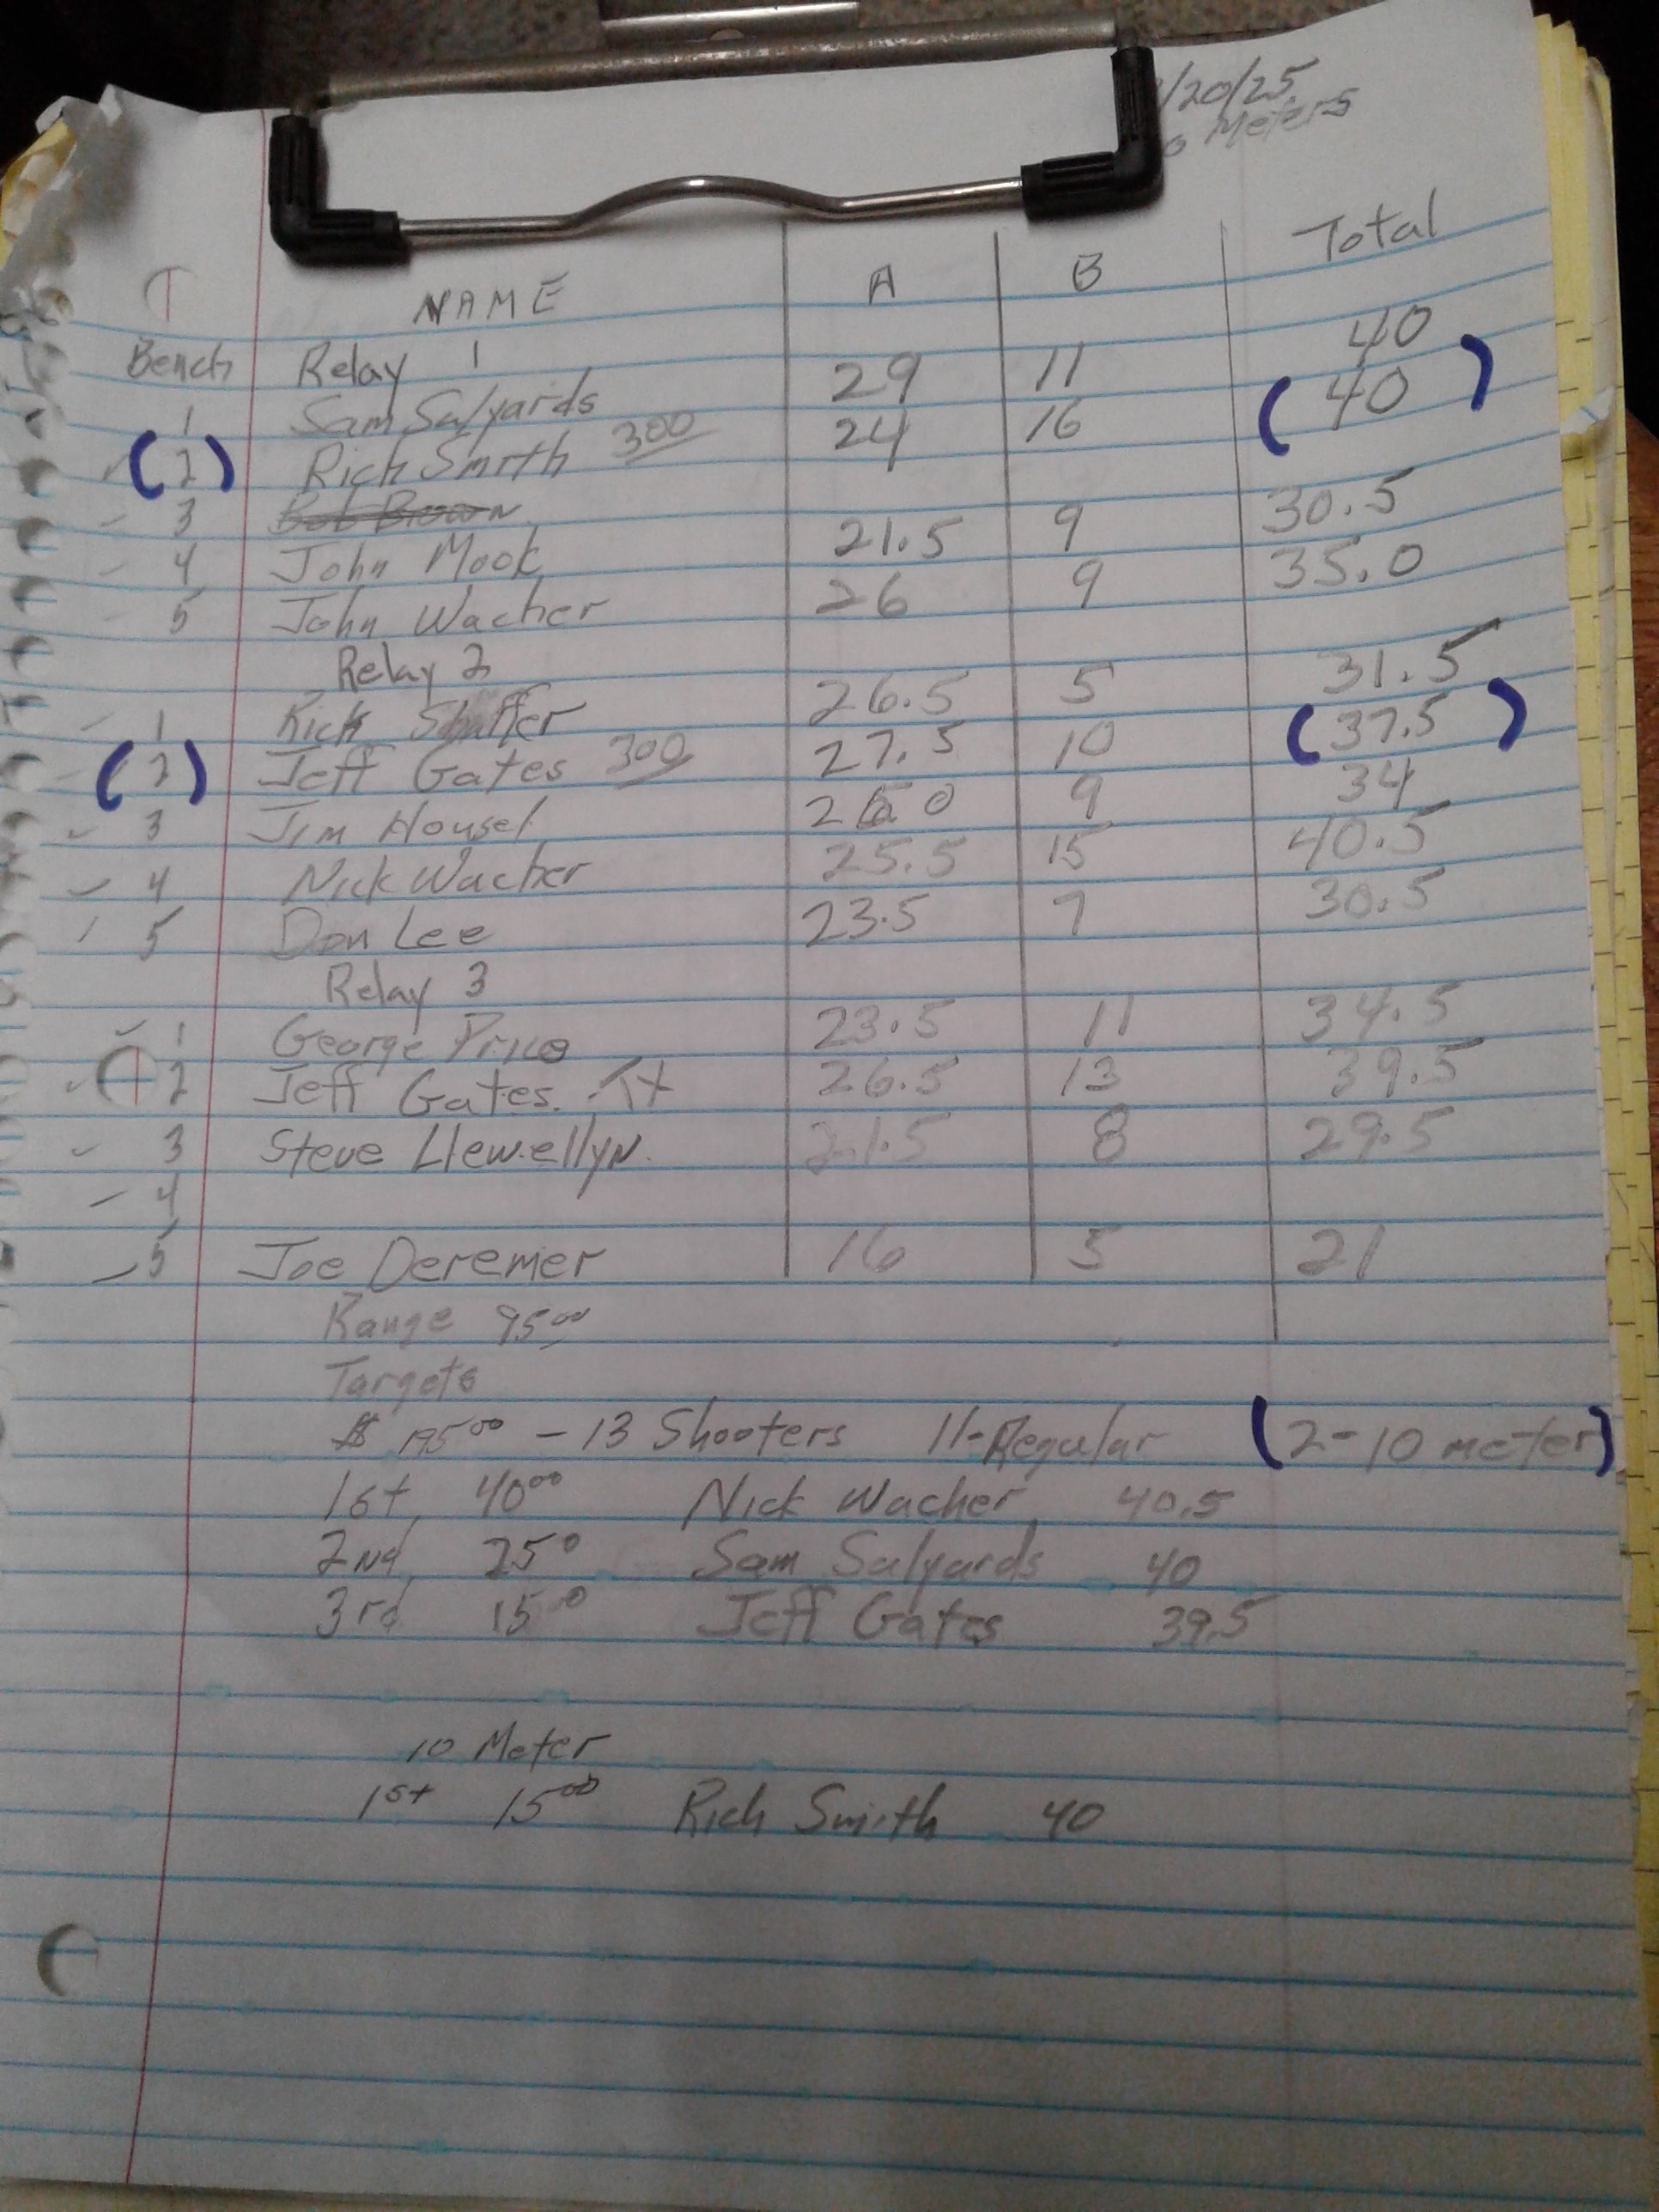 /20/25
Meters
NAME A B Total
Bench Relay 1
1 Sam Salyards 29 11 40
(2) Rich Smith 300 24 16 (40)
3 Bob Brown
4 John Mook 21.5 9 30.5
5 John Wacher 26 9 35.0
Relay 2
1 Rick Shaffer 26.5 5 31.5
(2) Jeff Gates 300 27.5 10 (37.5)
3 Jim Housel 9 34
4 Nick Wacher 25.5 15 40.5
5 Don Lee 23.5 7 30.5
Relay 3
1 George Price 23.5 11 34.5
2 Jeff Gates. 26.5 13 39.5
3 Steve Llewellyn. 21.5 8 29.5
4
5 Joe Deremer 16 5 21
Range 95 00
Targets
$ 195 00 - 13 Shooters 11-Regular (2-10 meter)
1st 40 00 Nick Wacher 40.5
2nd 25 0 Sam Salyards 40
3rd 15 0 Jeff Gates 39.5
10 Meter
1st 15 00 Rich Smith 40